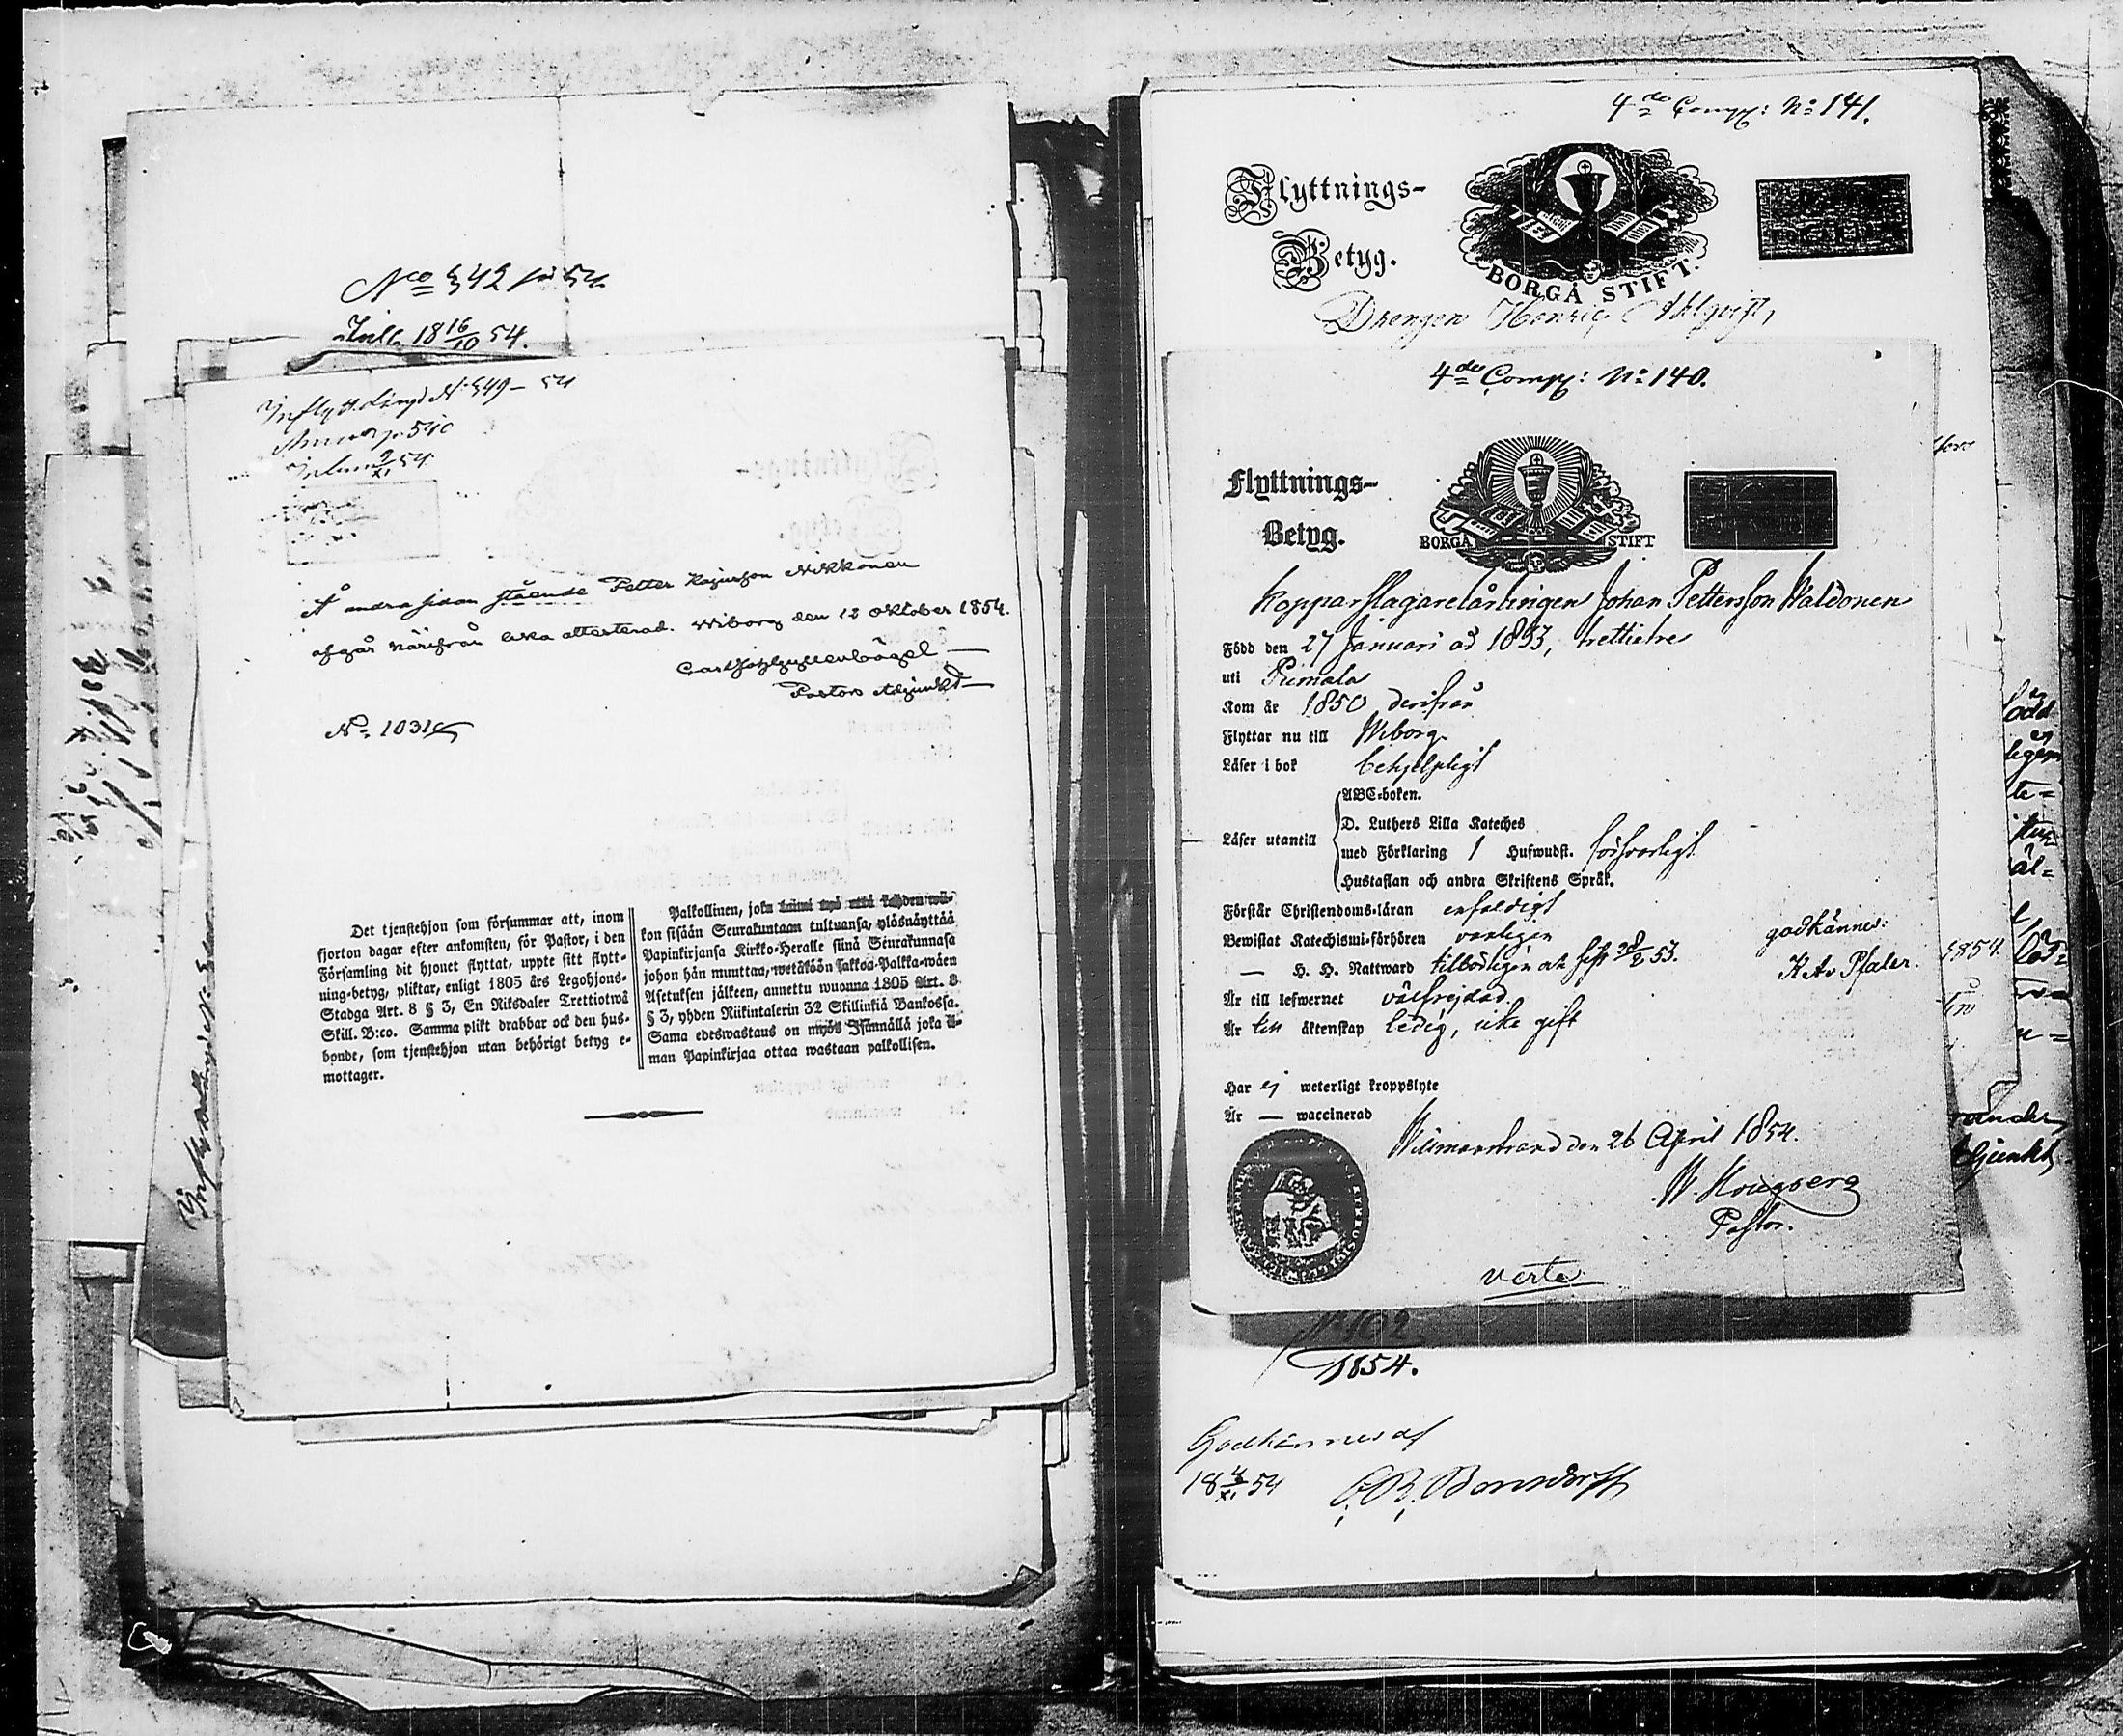 No 542 för 54.
Inl. 18 16/10 54.
Inflytt. Längd N: 549 – 54
540
2/XI 54.
Å andra sidan stående Petter Kajusson Nikkonen
afgår härifrån lika attesterad. Wiborg den 12 Oktober 1854.
Pastors Adjunkt
No 1031
Det tjenstehjon som försummar att, inom
fjorton dagar efter ankomsten, för Pastor, i den
Församling dit hjonet flyttat, uppte sitt flytt-
ning-betyg, pliktar, enligt 1805 års Legohjons-
Stadga Art. 8 § 3, En Riksdaler Trettiotwå
Skill. B:co. Samma plikt drabbar ock den hus-
bonde, som tjenstehjon utan behörigt betyg e-
mottager.
Palkollinen, joka kahden wii-
kon sisään Seurakuntaan tultuansa, ylösnäyttää
Papinkirjansa Kirkko-Herralle siinä Seurakunnasa
johon hän muuttaa, wetäköön sakkoa Palkka-wäen
Asetuksen jälkeen, annettu wuonna 1805 Art. 8
§ 3, yhden Riikintalerin 32 Skillinkiä Bankossa.
Sama edeswastaus on myös Isännällä joka il-
man Papinkirjaa ottaa wastaan palkollisen.
4de Comp: No 141.
Flyttnings-
Betyg.
BORGÅ STIFT.
Drengen Henric Ahlqvist,
4de Comp: No 140.
Flyttnings-
Betyg.
BORGÅ STIFT
Kopparslagarelärlingen Johan Pettersson Waldonen
Född den 27 Januari år 1833, trettietre
uti Pumala
Kom år 1850 derifrån
Flyttar nu till Wiborg
Läser i bok behjelpligt
ABC-boken.
D. Luthers Lilla Kateches
Läser utantill
med Förklaring 1 Hufwudst. försvarligt
Hustaflan och andra Skriftens Språk.
Förstår Christendoms-läran enfaldigt
Bewistat Katechismi-förhören vanligen
— H. H. Nattward tillbörligen och sist 53.
godkännes:
K. Av Pfaler.
Är till lefwernet välfrejdad.
Är till äktenskap ledig, icke gift
Har ej weterligt kroppslyte
Är — waccinerad
Willmanstrand den 26 April 1854.
Pastor.
verte
No 102
1854.
Godkännes af
18 4/XI 54 C. R. Bonsdorff